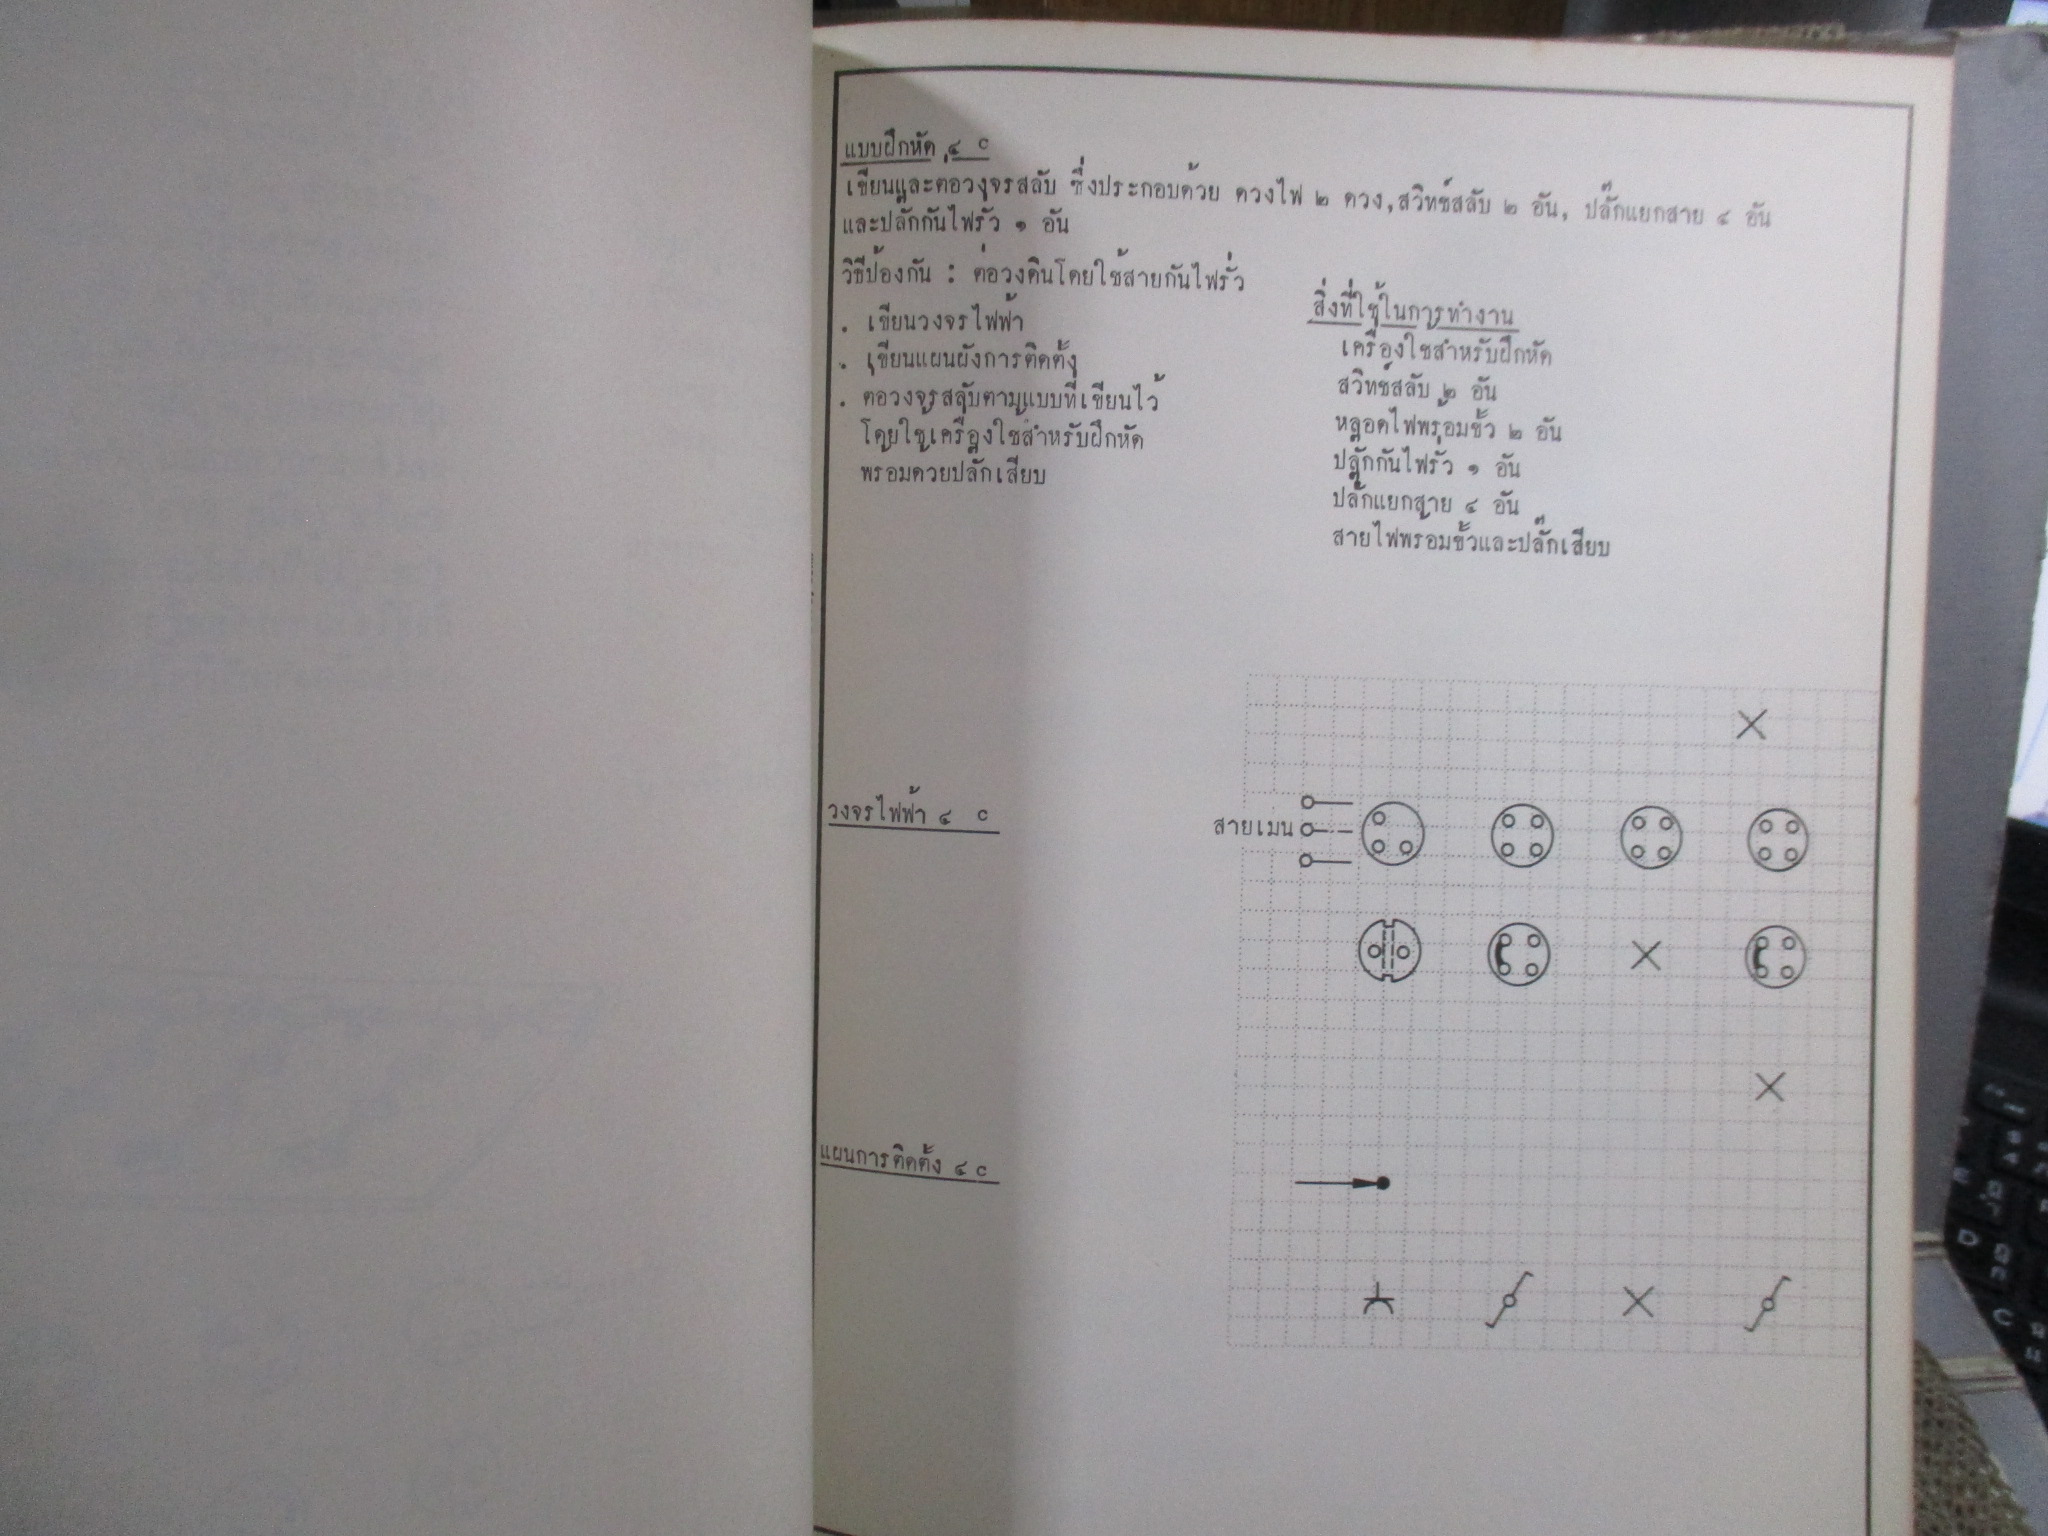 แบบฝึกหัด ๔ C
เขียนและต่อวงจรสลับ ซึ่งประกอบด้วย ดวงไฟ ๒ ดวง, สวิทช์สลับ ๒ อัน, ปลั๊กแยกสาย ๔ อัน
และปลั๊กกันไฟรั่ว ๑ อัน
วิธีป้องกัน : ต่อวงดินโดยใช้สายกันไฟรั่ว
. เขียนวงจรไฟฟ้า
. เขียนแผนผังการติดตั้ง
. ตอวงจรสลับตามแบบที่เขียนไว้
โดยใช้เครื่องใช้สำหรับฝึกหัด
พรอมดวยปลั๊กเสียบ
สิ่งที่ใช้ในการทำงาน
เครื่องใชสำหรับฝึกหัด
สวิทช์สลับ ๒ อัน
หลอดไฟพร้อมขั้ว ๒ อัน
ปลั๊กกันไฟรั่ว ๑ อัน
ปลั๊กแยกสาย ๔ อัน
สายไฟพร้อมขั้วและปลั๊กเสียบ
วงจรไฟฟ้า ๔ C
สายเมน
แผนการติดตั้ง ๔ C